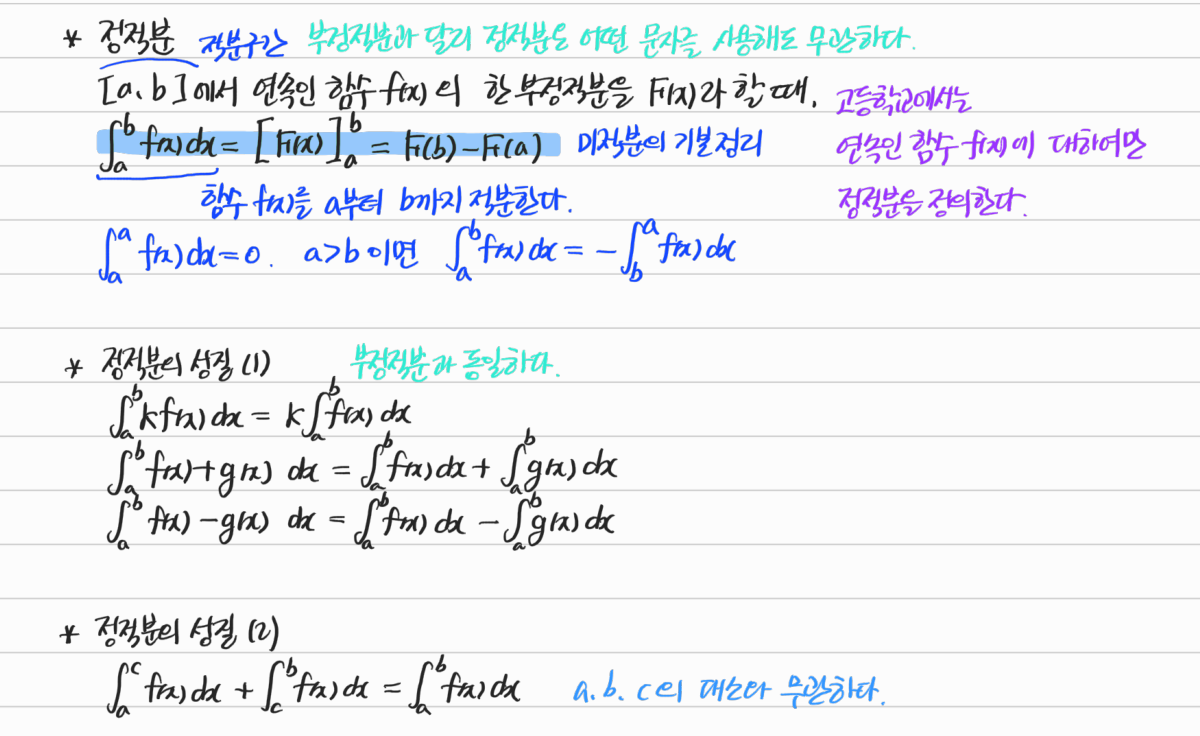 * 정적분 적분구간 부정적분과 달리 정적분은 어떤 문자를 사용해도 무관하다.
[a, b]에서 연속인 함수 f(x)의 한 부정적분을 F(x)라 할 때,
∫ₐᵇ f(x)dx = [F(x)]ₐᵇ = F(b) - F(a) 미적분의 기본정리
고등학교에서는
연속인 함수 f(x)에 대하여만
정적분을 정의한다.
함수 f(x)를 a부터 b까지 적분한다.
∫ₐᵃ f(x)dx = 0. a>b 이면 ∫ₐᵇ f(x)dx = -∫_b^a f(x)dx
* 정적분의 성질 (1) 부정적분과 동일하다.
∫ₐᵇ kf(x)dx = k∫ₐᵇ f(x)dx
∫ₐᵇ f(x)+g(x) dx = ∫ₐᵇ f(x)dx + ∫ₐᵇ g(x)dx
∫ₐᵇ f(x)-g(x) dx = ∫ₐᵇ f(x)dx - ∫ₐᵇ g(x)dx
* 정적분의 성질 (2)
∫_a^c f(x)dx + ∫_c^b f(x)dx = ∫_a^b f(x)dx a. b. c의 대소와 무관하다.